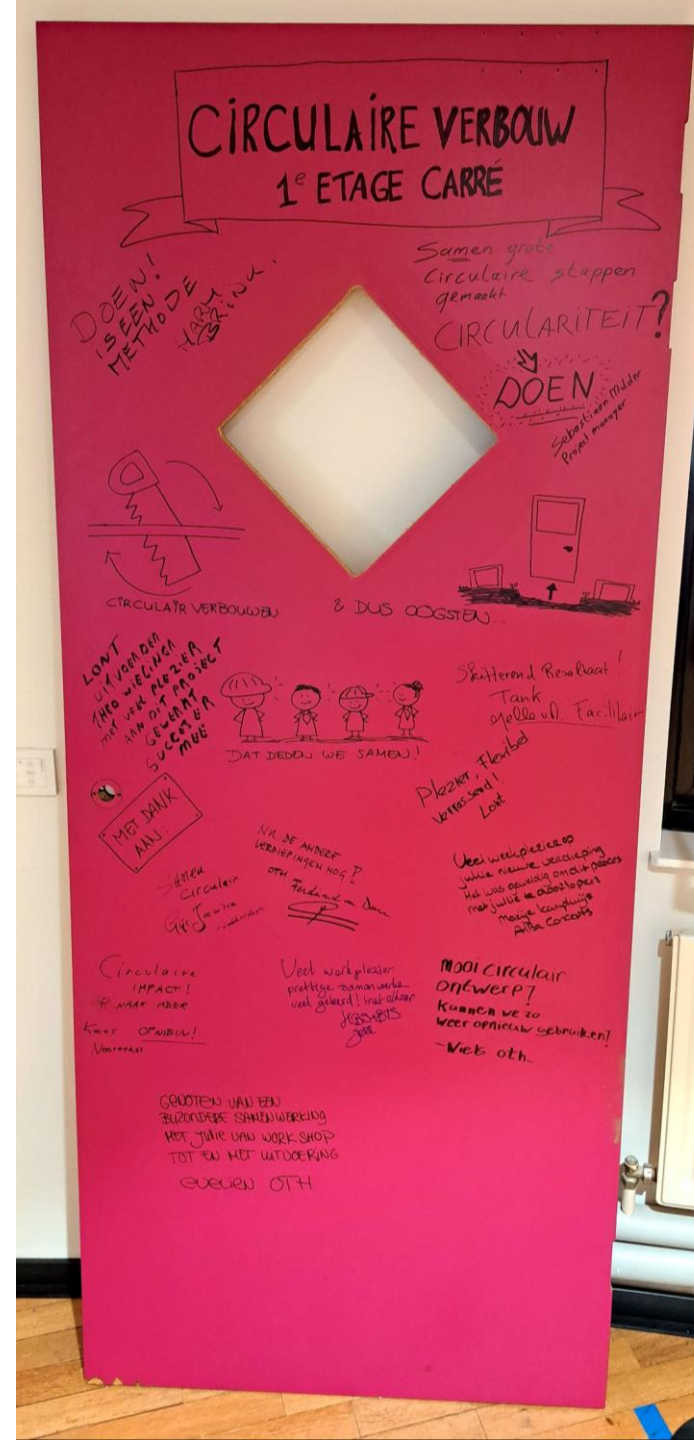 CIRCULAIRE VERBOUW
1e ETAGE CARRÉ
DOEN!
IS EEN
METHODE
HARM
BRINK.
Samen grote
circulaire stappen
gemaakt
CIRCULARITEIT?
DOEN
Sebastiaan Mulder
Project manager
CIRCULAIR VERBOUWEN
& DUS OOGSTEN...
LONT
UITVOERDER
THEO WIELINGA
MET VEEL PLEZIER
AAN DIT PROJECT
GEWERKT
SUCCES ER
MEE
DAT DEDEN WE SAMEN!
Skitterend Resultaat!
Tank
Facilitair
Plezier, Flexibel
Verrassend!
Lont
MET DANK
AAN:
Samen
Circulair
NU DE ANDERE
VERDIEPINGEN NOG!
OTH Ferdinand
Veel werkplezier op
jullie nieuwe verdieping
Het was geweldig om dit proces
met jullie te doorlopen
Marije
Anna
Circulaire
IMPACT!
OP NAAR MEER
Kees OPNIEUW!
Veel werkplezier
prettige samenwerking
veel geleerd! met elkaar
Jelle
Mooi circulair
ontwerp?
Kunnen we zo
weer opnieuw gebruiken?
-Niels oth-
GENOTEN VAN EEN
BIJZONDERE SAMENWERKING
MET JULLIE VAN WORKSHOP
TOT EN MET UITVOERING
OTH